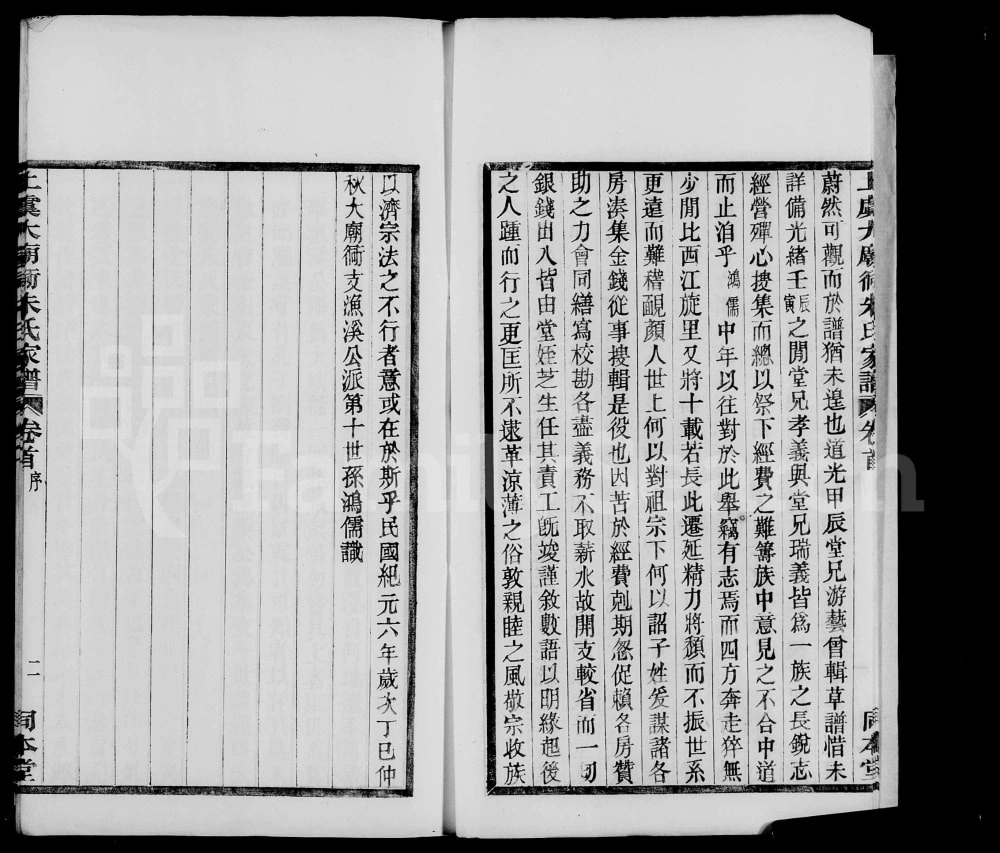 上虞大廟衖朱氏家譜 卷首
蔚然可觀而於譜猶未遑也道光甲辰堂兄游藝曾輯草譜惜未
詳備光緒壬辰寅之閒堂兄孝義與堂兄瑞義皆爲一族之長銳志
經營殫心搜集而總以祭下經費之難籌族中意見之不合中道
而止洎乎鴻儒中年以往對於此舉竊有志焉而四方奔走猝無
少閒比西江旋里又將十載若長此遷延精力將頹而不振世系
更遠而難稽靦顏人世上何以對祖宗下何以詔子姓爰謀諸各
房湊集金錢從事搜輯是役也因苦於經費剋期忽促賴各房贊
助之力會同繕寫校勘各盡義務不取薪水故開支較省而一切
銀錢出入皆由堂姪芝生任其責工旣竣謹敘數語以明緣起後
之人踵而行之更匡所不逮革涼薄之俗敦親睦之風敬宗收族
同本堂
以濟宗法之不行者意或在於斯乎民國紀元六年歲次丁巳仲
秋大廟衖支漁溪公派第十世孫鴻儒識
上虞大廟衖朱氏家譜 卷首 序 二 同本堂